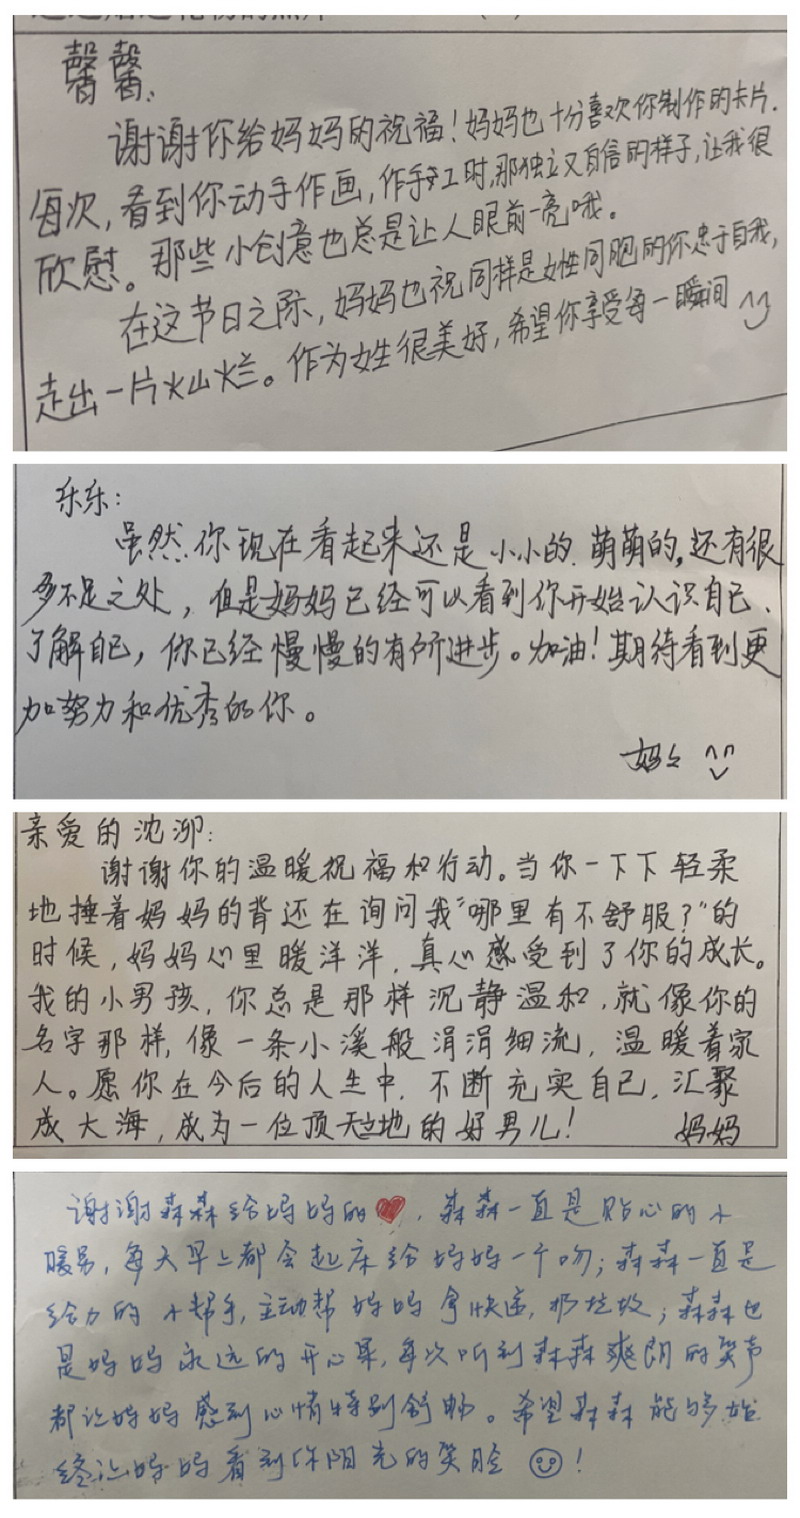 馨馨:
谢谢你给妈妈的祝福!妈妈也十分喜欢你制作的卡片.
每次,看到你动手作画,作手工时,那独立又自信的样子,让我很
欣慰。那些小创意也总是让人眼前一亮哦。
在这节日之际,妈妈也祝同样是女性同胞的你忠于自我,
走出一片灿烂。作为女生很美好,希望你享受每一瞬间
乐乐:
虽然你现在看起来还是小小的.萌萌的,还有很
多不足之处,但是妈妈已经可以看到你开始认识自己、
了解自己,你已经慢慢的有所进步。加油!期待看到更
加努力和优秀的你。
妈々
亲爱的沈泖:
谢谢你的温暖祝福和行动。当你一下下轻柔
地捶着妈妈的背还在询问我“哪里有不舒服?”的
时候,妈妈心里暖洋洋,真心感受到了你的成长。
我的小男孩,你总是那样沉静温和,就像你的
名字那样,像一条小溪般涓涓细流,温暖着家
人。愿你在今后的人生中,不断充实自己,汇聚
成大海,成为一位顶天立地的好男儿!
妈妈
谢谢森森给妈妈的❤,森森一直是贴心的小
暖男,每天早上都会起床给妈妈一个吻;森森一直是
给力的小帮手,主动帮妈妈拿快递,扔垃圾;森森也
是妈妈永远的开心果,每次听到森森爽朗的笑声
都让妈妈感到心情特别舒畅。希望森森能够始
终让妈妈看到你阳光的笑脸☺!